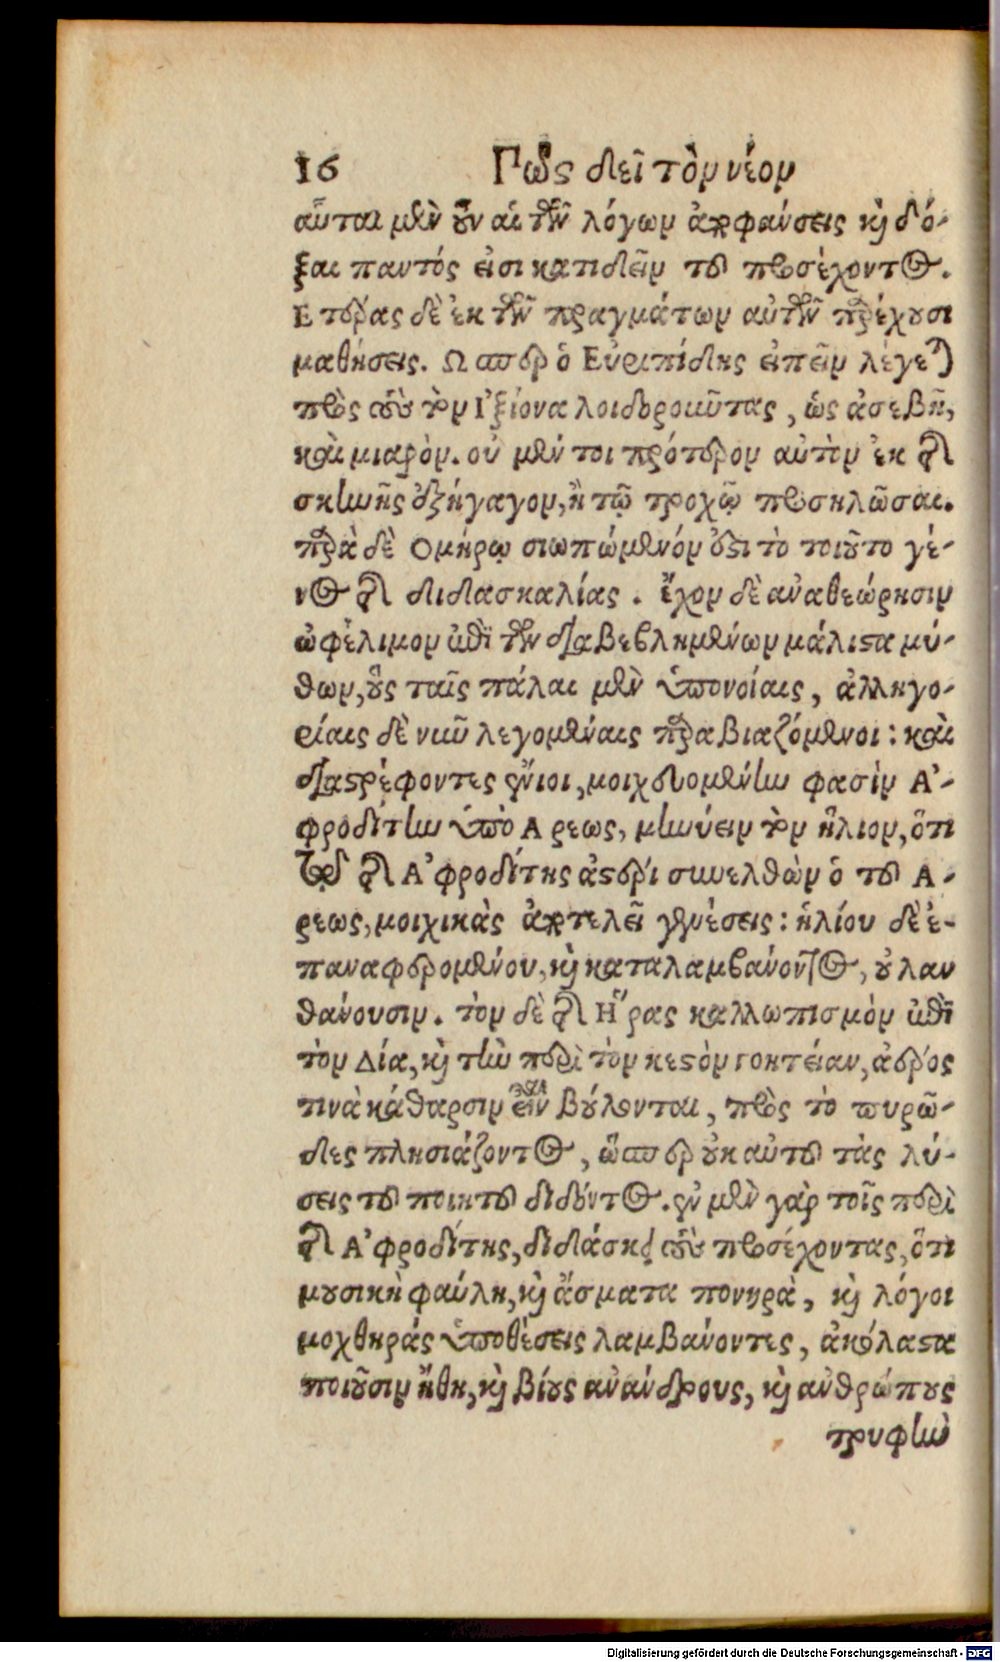 16 Πῶς δεῖ τὸν νέον
αὗται μὲν οὖν αἱ τῶν λόγων ἀποφάνσεις καὶ δό-
ξαι παντός εἰσι κατιδεῖν τοῦ προσέχοντος.
Ετέρας δὲ ἐκ τῶν πραγμάτων αὐτῶν παρέχουσι
μαθήσεις. Ωσπερ ὁ Εὐριπίδης εἰπεῖν λέγεται
πρὸς τοὺς τὸν Ἰξίονα λοιδοροῦντας, ὡς ἀσεβῆ,
καὶ μιαρὸν. οὐ μέντοι πρότερον αὐτὸν ἐκ τῆς
σκηνῆς ἐξήγαγον, ἢ τῷ τροχῷ προσηλῶσαι.
παρὰ δὲ Ομήρῳ σιωπώμενόν ἐστι τὸ τοιοῦτο γέ-
νος τῆς διδασκαλίας. ἔχον δὲ ἀναθεώρησιν
ὠφέλιμον ἐπὶ τῶν διαβεβλημένων μάλιστα μύ-
θων, οὓς ταῖς πάλαι μὲν ὑπονοίαις, ἀλληγο-
ρίαις δὲ νῦν λεγομέναις παραβιαζόμενοι: καὶ
διαστρέφοντες ἔνιοι, μοιχευομένην φασὶν Ἀ-
φροδίτην ὑπὸ Αρεως, μηνύειν τὸν ἥλιον, ὅτι
τῷ τῆς Ἀφροδίτης ἀστέρι συνελθὼν ὁ τοῦ Α-
ρεως, μοιχικὰς ἀποτελεῖ γενέσεις: ἡλίου δὲ ἐ-
παναφερομένου, καὶ καταλαμβάνοντος, οὐ λαν
θάνουσιν. τὸν δὲ τῆς Ἥρας καλλωπισμὸν ἐπὶ
τὸν Δία, καὶ τὴν περὶ τὸν κεστὸν γοητείαν, ἀέρος
τινὰ κάθαρσιν εἶναι βούλονται, πρὸς τὸ πυρῶ-
δες πλησιάζοντος, ὥσπερ οὐκ αὐτοῦ τὰς λύ-
σεις τοῦ ποιητοῦ διδόντος. ἐν μὲν γὰρ τοῖς περὶ
τῆς Ἀφροδίτης, διδάσκει τοὺς προσέχοντας, ὅτι
μουσικὴ φαύλη, καὶ ᾄσματα πονηρὰ, καὶ λόγοι
μοχθηράς ὑποθέσεις λαμβάνοντες, ἀκόλαστα
ποιοῦσιν ἤθη, καὶ βίους ἀνάνδρους, καὶ ἀνθρώπους
τρυφὴν
Digitalisierung gefördert durch die Deutsche Forschungsgemeinschaft - DFG